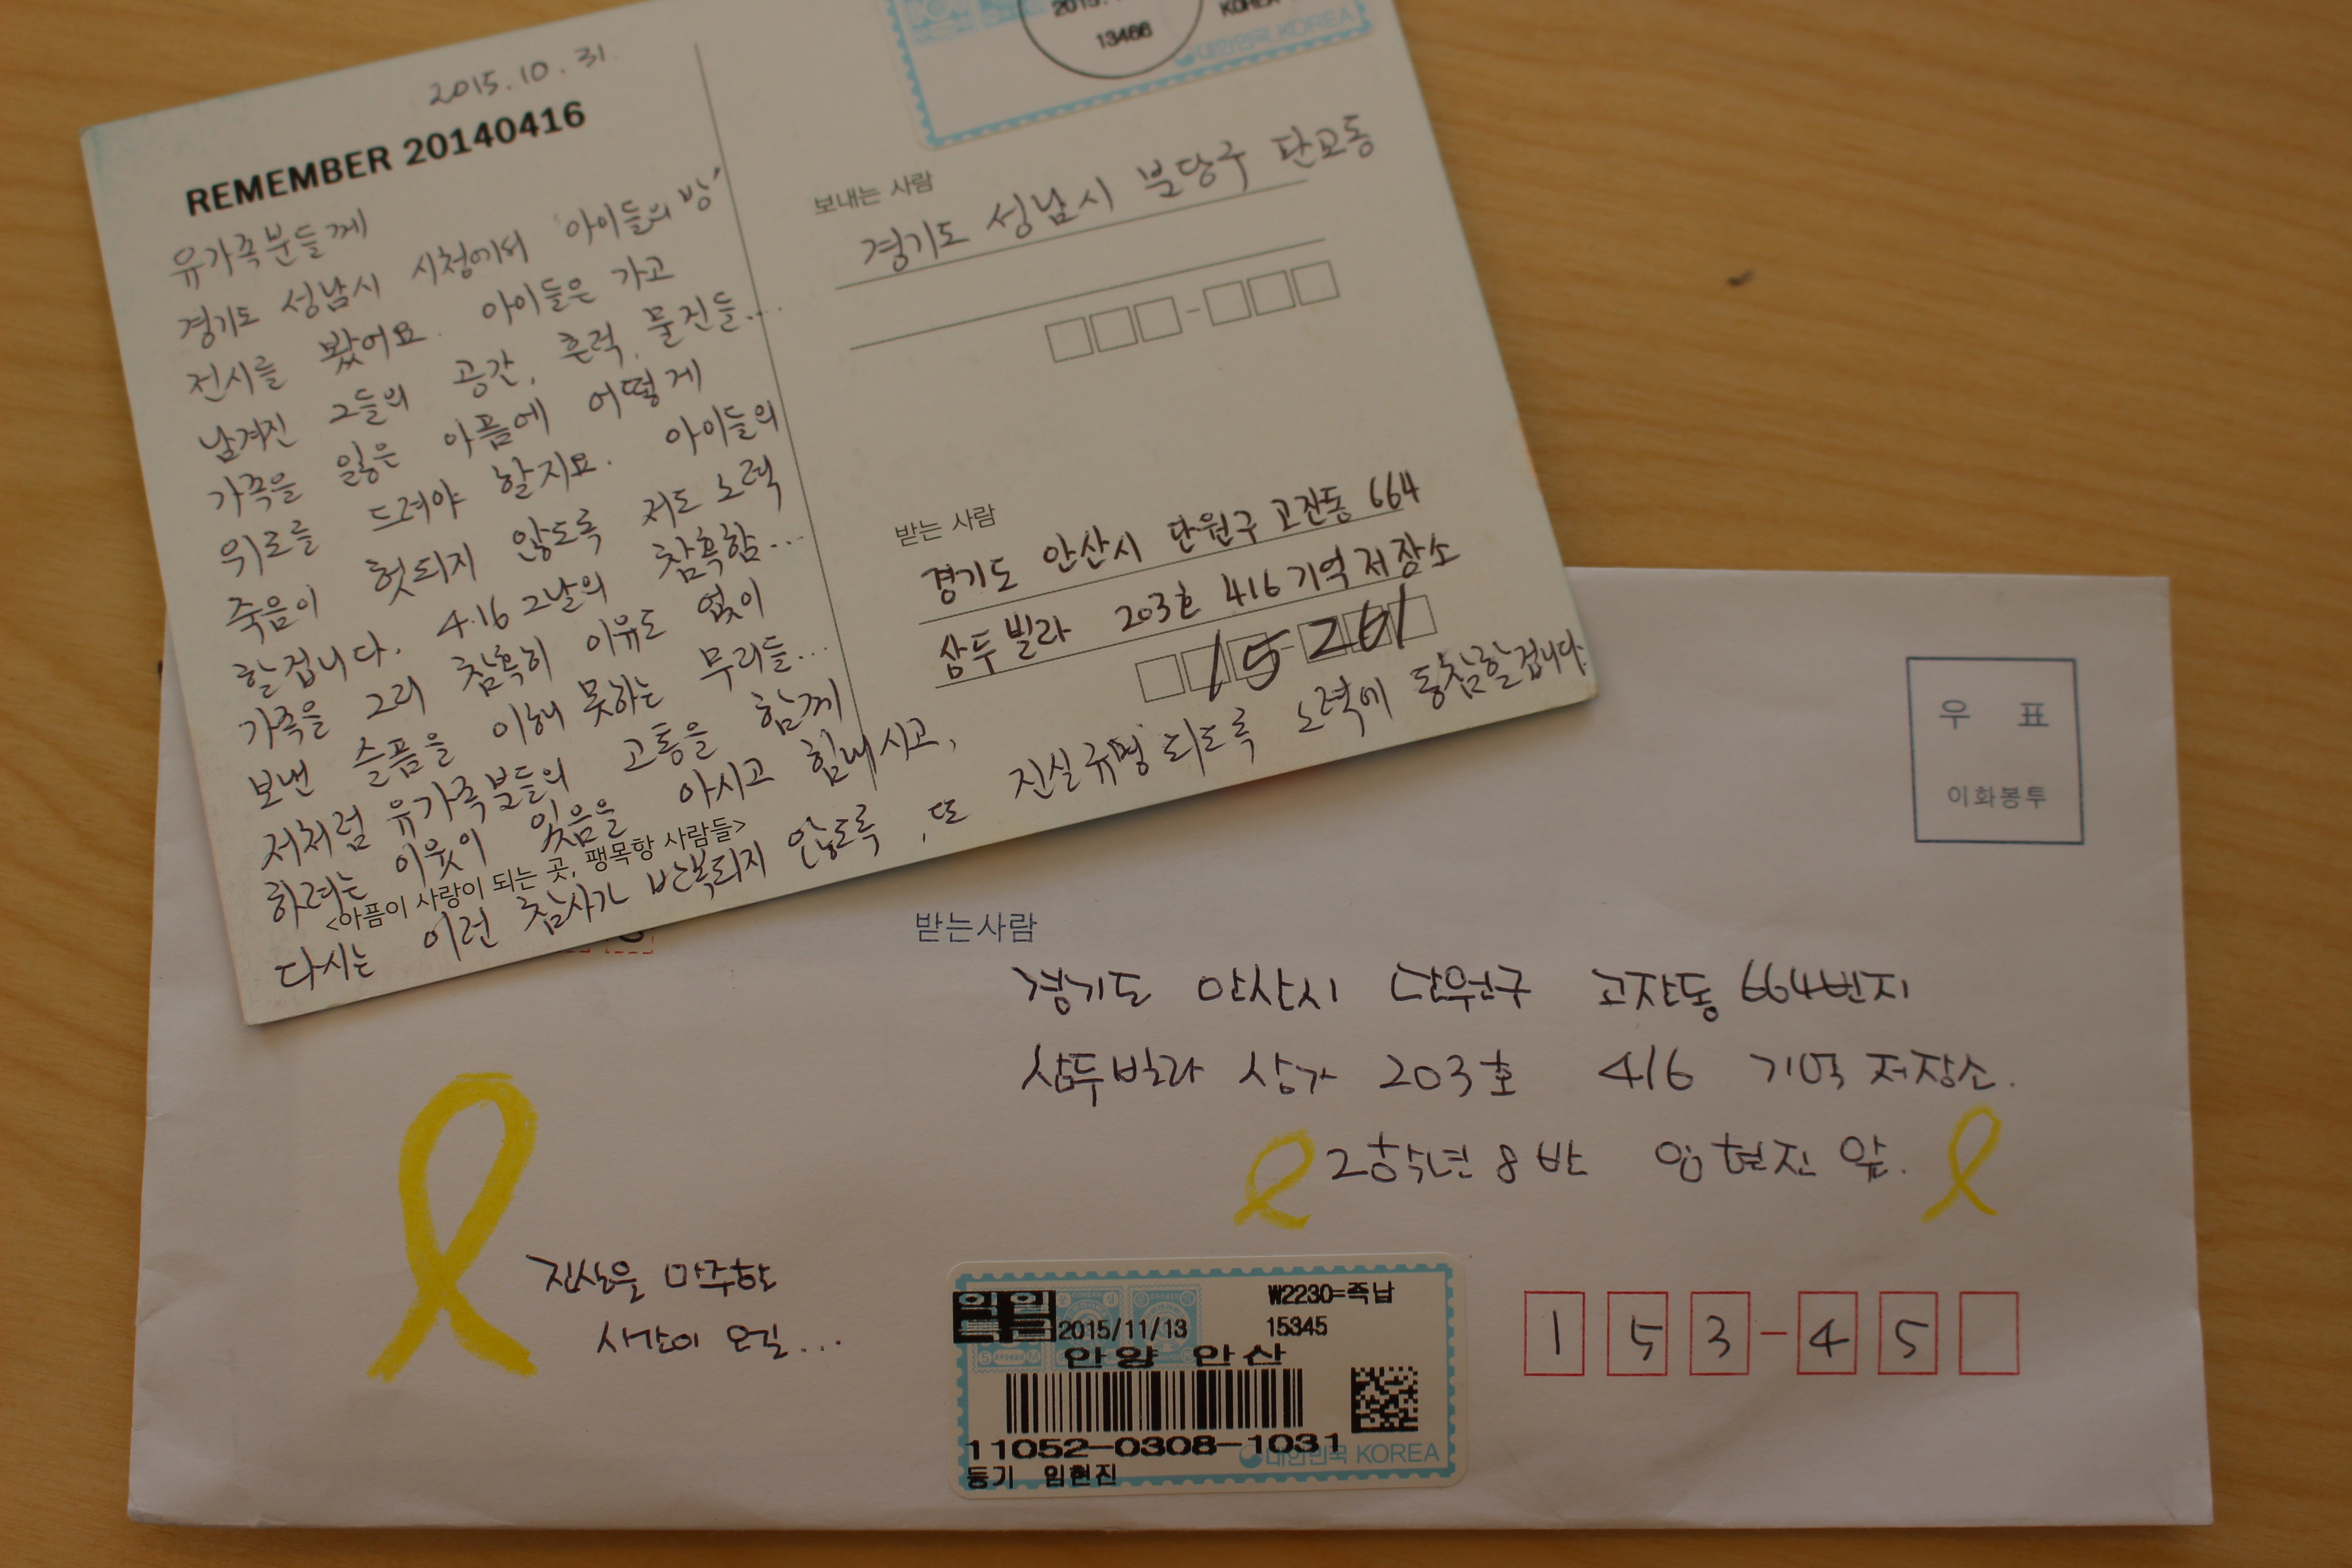 2015.10.31.
REMEMBER 20140416
유가족분들께
경기도 성남시 시청에서 '아이들의 방'
전시를 봤어요. 아이들은 가고
남겨진 그들의 공간, 흔적, 물건들...
가족을 잃은 아픔에 어떻게
위로를 드려야 할지요. 아이들의
죽음이 헛되지 않도록 저도 노력
할겁니다. 4.16 그날의 참혹함...
가족을 그리 참혹히 이유도 없이
보낸 슬픔을 이해 못하는 무리들...
저처럼 유가족분들의 고통을 함께
하려는 이웃이 있음을 아시고 힘내시고,
<아픔이 사랑이 되는 곳, 팽목항 사람들>
다시는 이런 참사가 반복되지 않도록, 또 진실규명 되도록 노력에 동참할겁니다.
2015.
13466
KOREA
대한민국 KOREA
보내는 사람
경기도 성남시 분당구 판교동
받는 사람
경기도 안산시 단원구 고잔동 664
삼두빌라 203호 416기억저장소
15261
우 표
이화봉투
받는사람
경기도 안산시 단원구 고잔동 664번지
삼두빌라 상가 203호 416 기억저장소.
2학년 8반 임현진 앞.
진상을 마주할
시간이 오길...
익일
2015/11/13
W2230=족납
15345
안양 안산
11052-0308-1031
대한민국 KOREA
등기 임현진
153-45